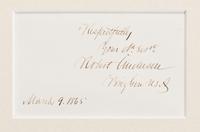 Respectfully
Your Ob. Servt.
Robert Anderson
Brig Gen U.S.A
March 9. 1865